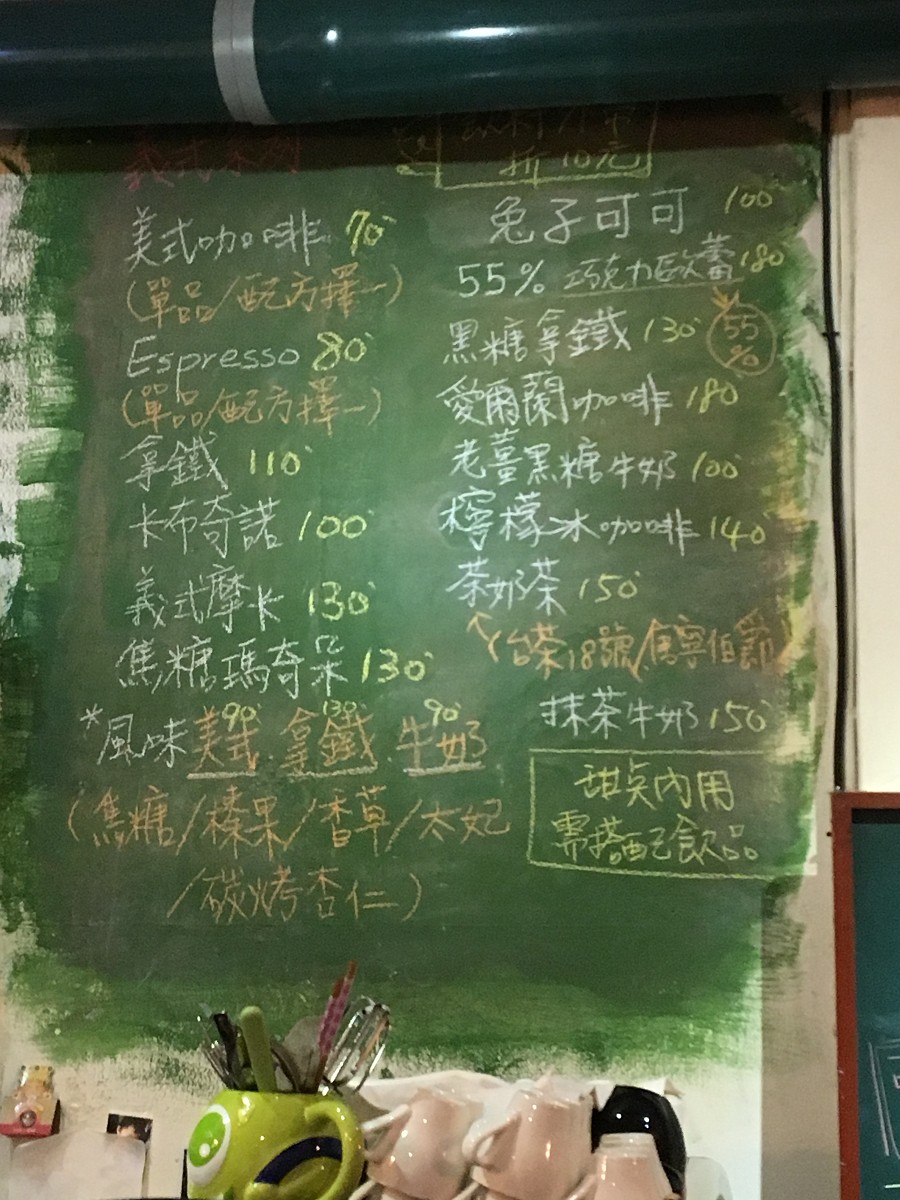 義式系列
美式咖啡 70
(單品/配方擇一)
Espresso 80
(單品/配方擇一)
拿鐵 110
卡布奇諾 100
義式摩卡 130
焦糖瑪奇朵 130
90 130 90
*風味美式 拿鐵 牛奶
(焦糖/榛果/香草/太妃
/碳烤杏仁)
折10元
兔子可可 100
55% 巧克力歐蕾 180
黑糖拿鐵 130
55%
愛爾蘭咖啡 180
老薑黑糖牛奶 100
檸檬冰咖啡 140
茶奶茶 150
(台茶18號/
抹茶牛奶 150
甜點內用
需搭配飲品